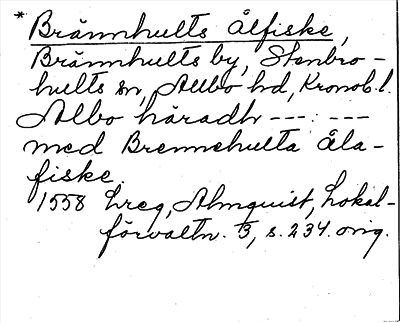 * Brännhults Ålfiske,
Brännhults by, Stenbro-
hults sn, Allbo hd, Kronob. l.
Albo häradh ---:---
med Brennehulta åla-
fiske.
1558 Lreg, Almquist, Lokal-
förvaltn. 3, s. 234. orig.